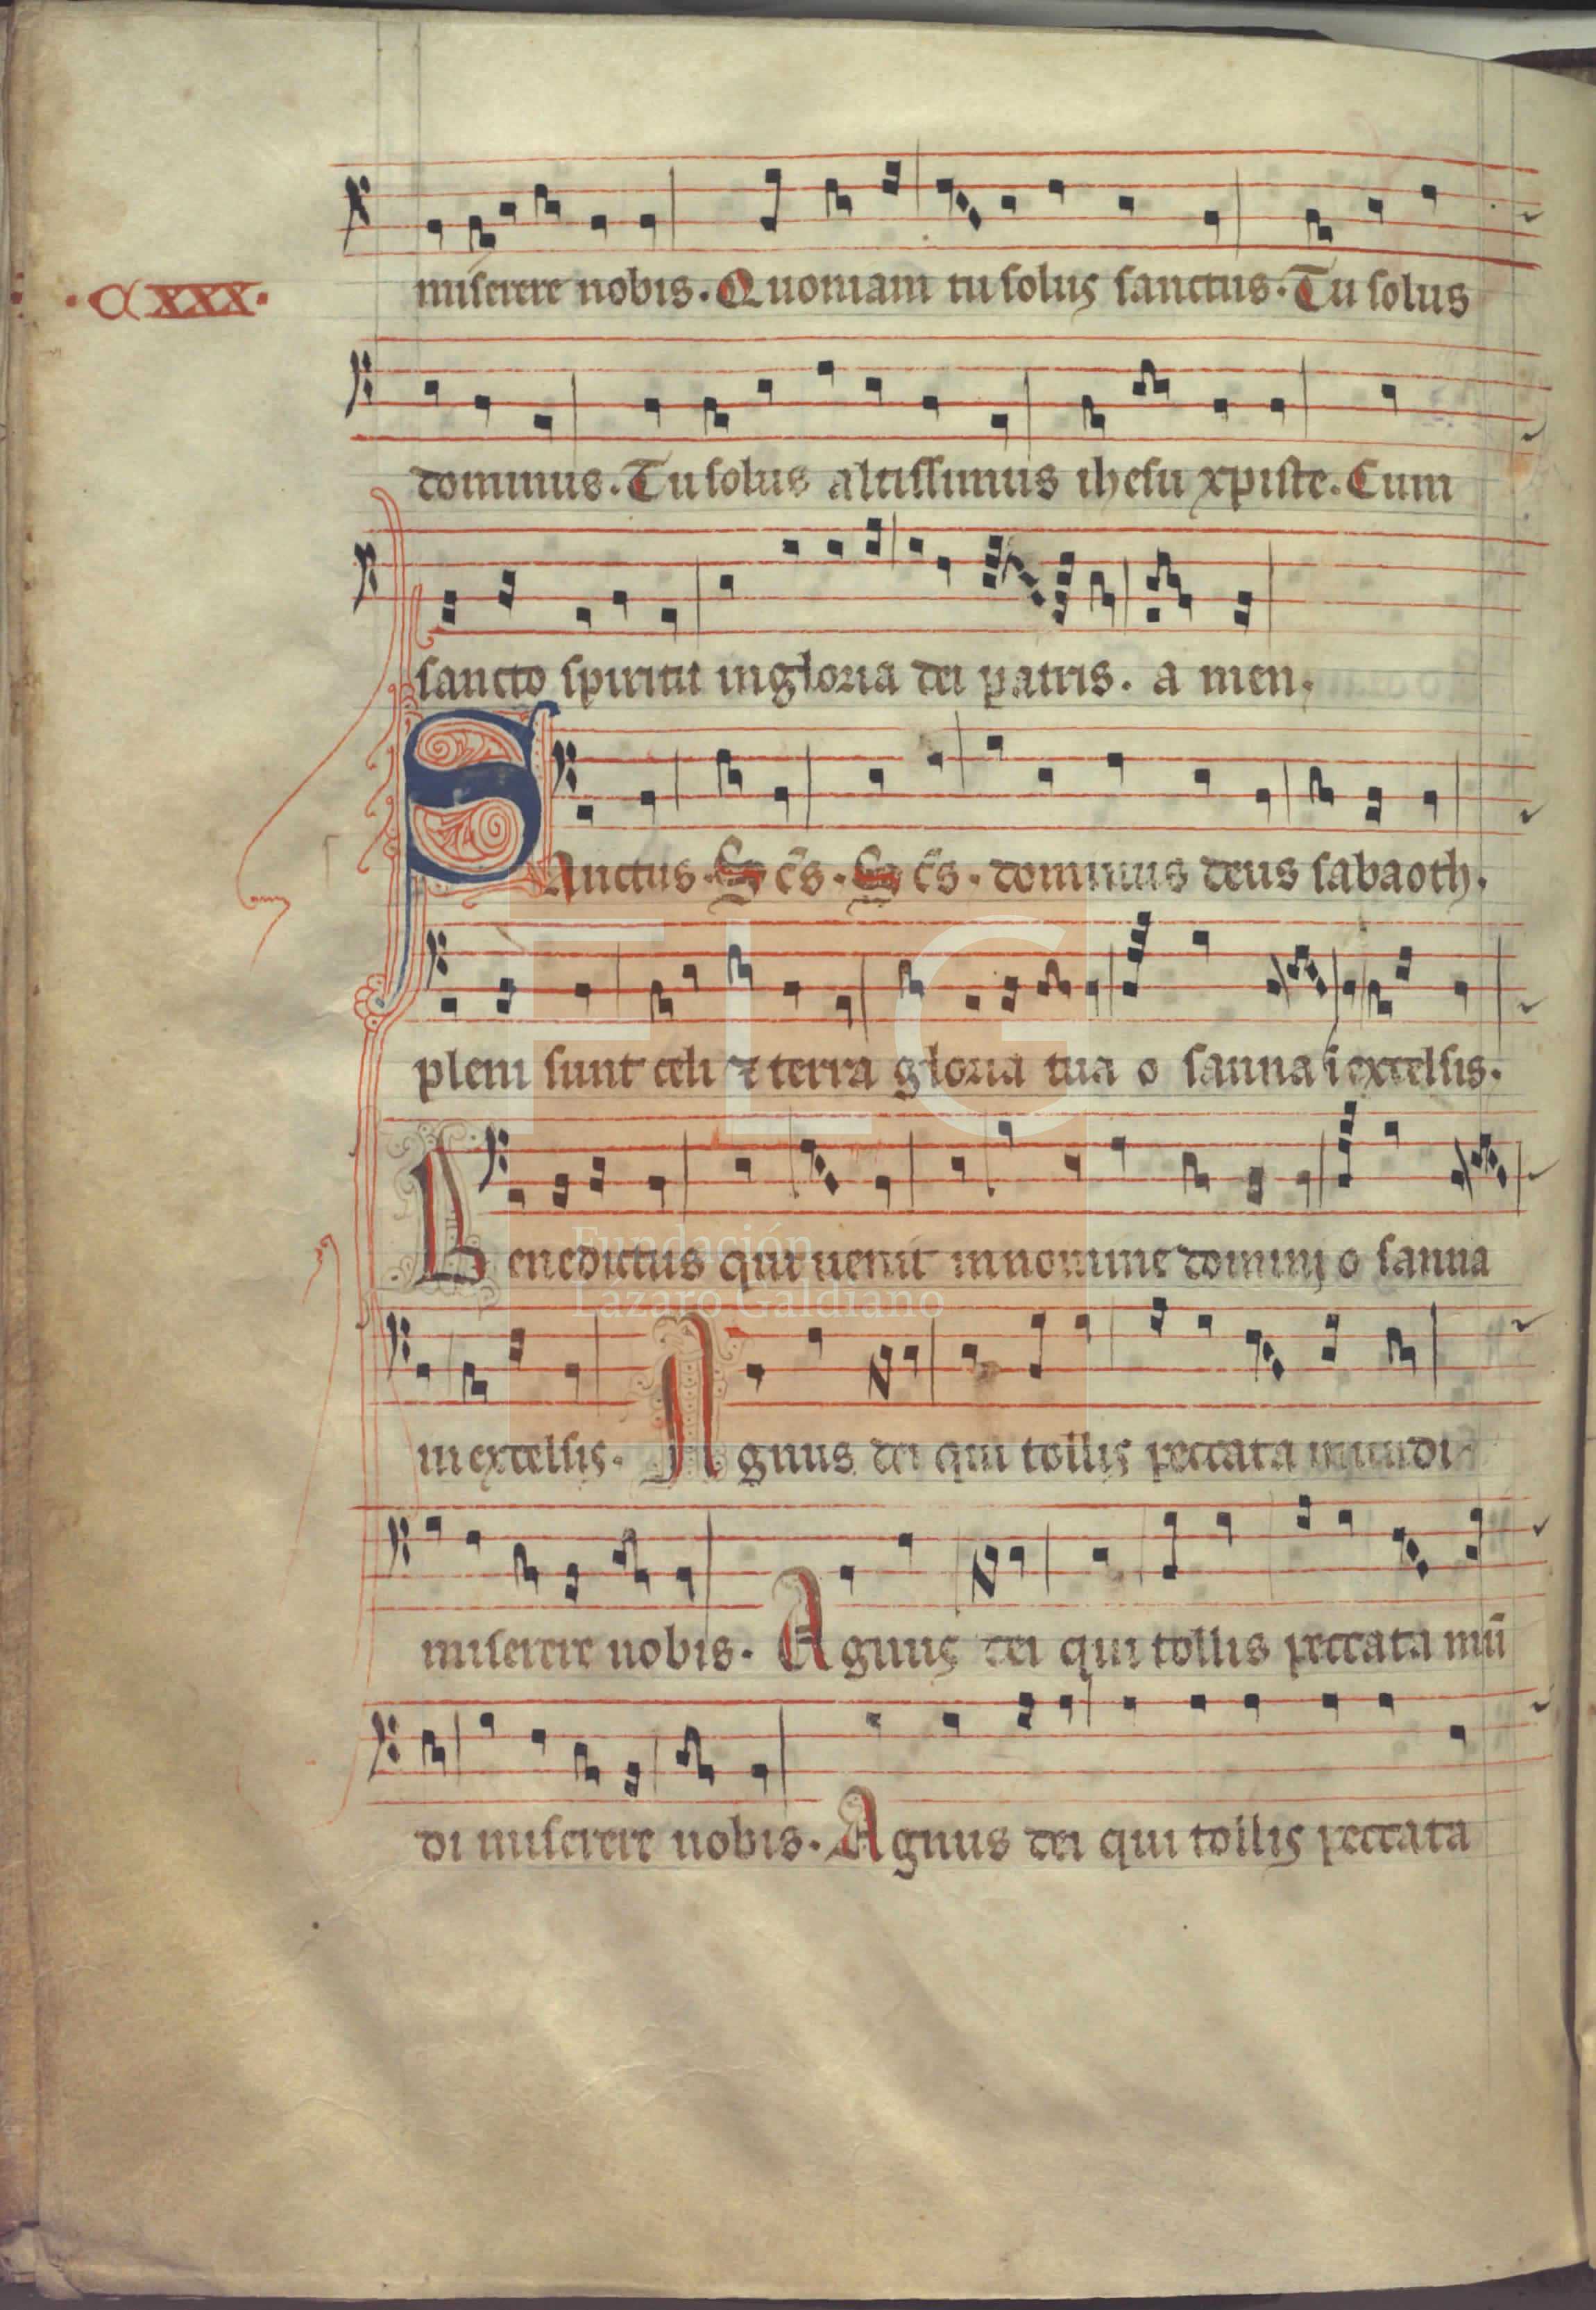 .CXXX.
miserere nobis. Quoniam tu solus sanctus. Tu solus
dominus. Tu solus altissimus ihesu xpiste. Cum
sancto spiritu in gloria dei patris. a men.
SAnctus. S c̄s. S c̄s. dominus deus sabaoth.
pleni sunt celi ⁊ terra gloria tua o sanna ī excelsis.
Benedictus qui uenit in nomine domini o sanna
in excelsis. Agnus dei qui tollis peccata mundi
miserere nobis. Agnus dei qui tollis peccata mū
di miserere nobis. Agnus dei qui tollis peccata
FLG
Fundación
Lázaro Galdiano